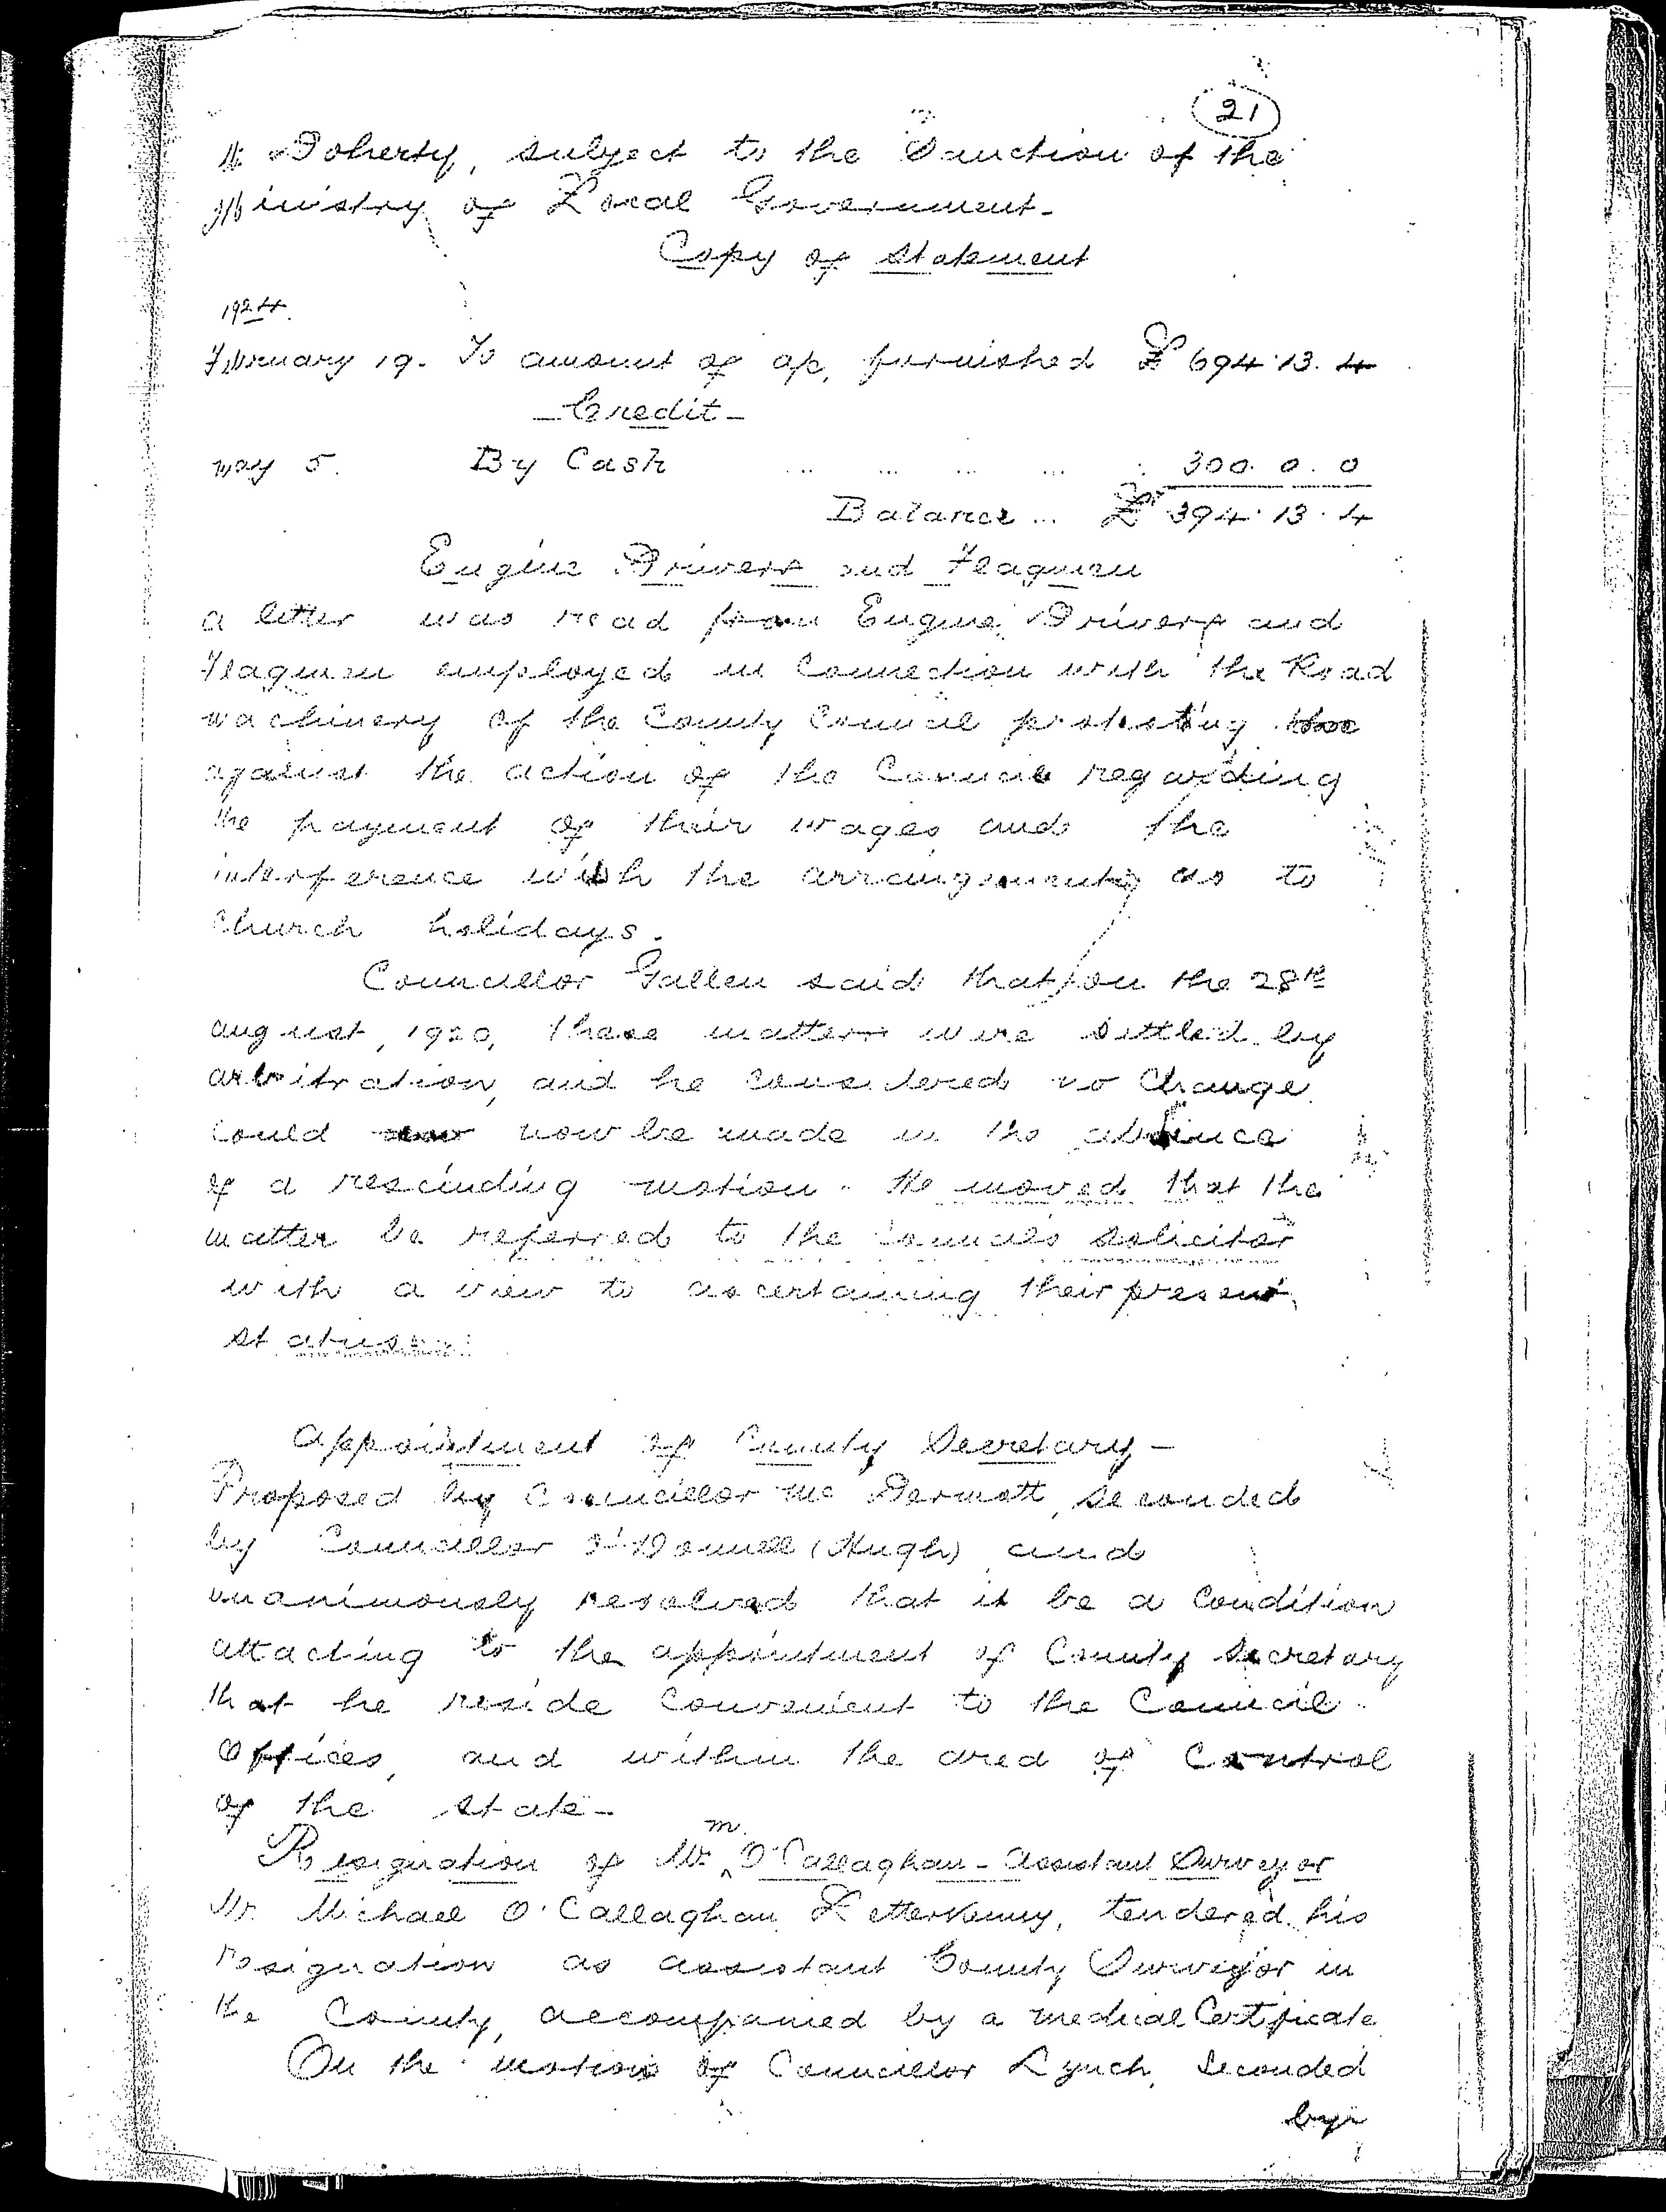 21
Mr Doherty, subject to the Sanction of the
Ministry of Local Government-
Copy of Statement
1924.
February 19. To amount of a/c, furnished £694.13.4
-Credit-
May 5. By Cash ... ... ... ... 300.0.0
Balance... £394.13.4
Engine Drivers and Flagmen
a letter was read from Engine Drivers and
Flagmen employed in Connection with the Road
machinery of the County Council protesting
against the action of the Council regarding
the payment of their wages and the
interference with the arrangements as to
Church holidays.
Councillor Gallen said that on the 28th
august, 1920, these matters were settled by
arbitration, and he considered no Change
could now be made in the absence
of a rescinding motion. He moved that the
matter be referred to the Council's solicitor
with a view to ascertaining their present
status.
Appointment of County Secretary-
Proposed by Councillor Mc Dermott, seconded
by Councillor O'Donnell (Hugh) and
unanimously resolved that it be a Condition
attaching to the appointment of County Secretary
that he reside Convenient to the Council
Offices, and within the area of Control
of the State-
Resignation of Mr. M. O'Callaghan - Assistant Surveyor
Mr. Michael O'Callaghan Letterkenny, tendered his
resignation as assistant County Surveyor in
the County, accompanied by a medical Certificate
On the motion of Councillor Lynch, Seconded
by